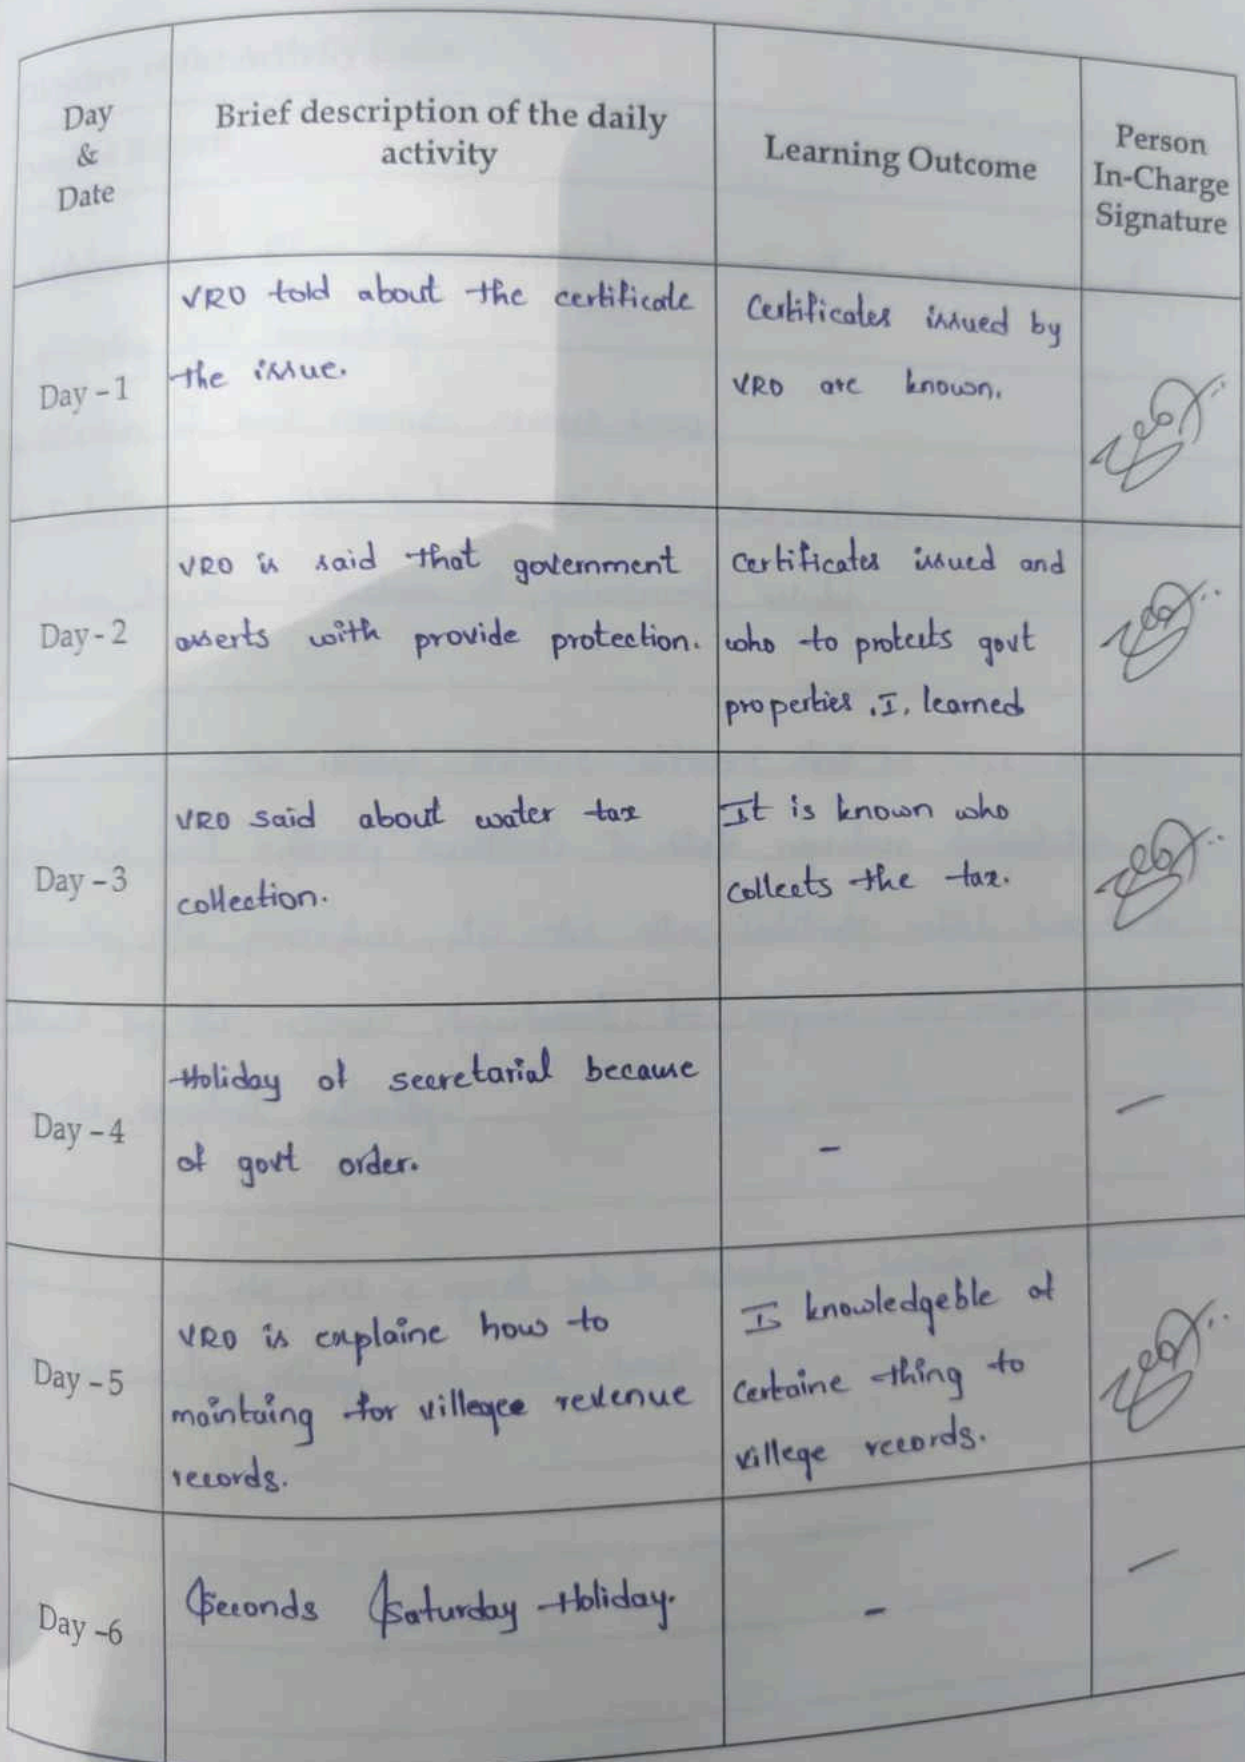 Day
&
Date
Brief description of the daily
activity
Learning Outcome
Person
In-Charge
Signature
Day - 1
VRO told about the certificate
the issue.
Certificates issued by
VRO are known.
Day - 2
VRO is said that government
asserts with provide protection.
Certificates issued and
who to protects govt
properties .I, learned
Day - 3
VRO said about water tax
collection.
It is known who
collects the tax.
Day - 4
Holiday of secretarial because
of govt order.
-
-
Day - 5
VRO is explaine how to
maintaing for villegee revenue
records.
I knowledgeble of
certaine thing to
villege records.
Day -6
Seconds Saturday Holiday.
-
-